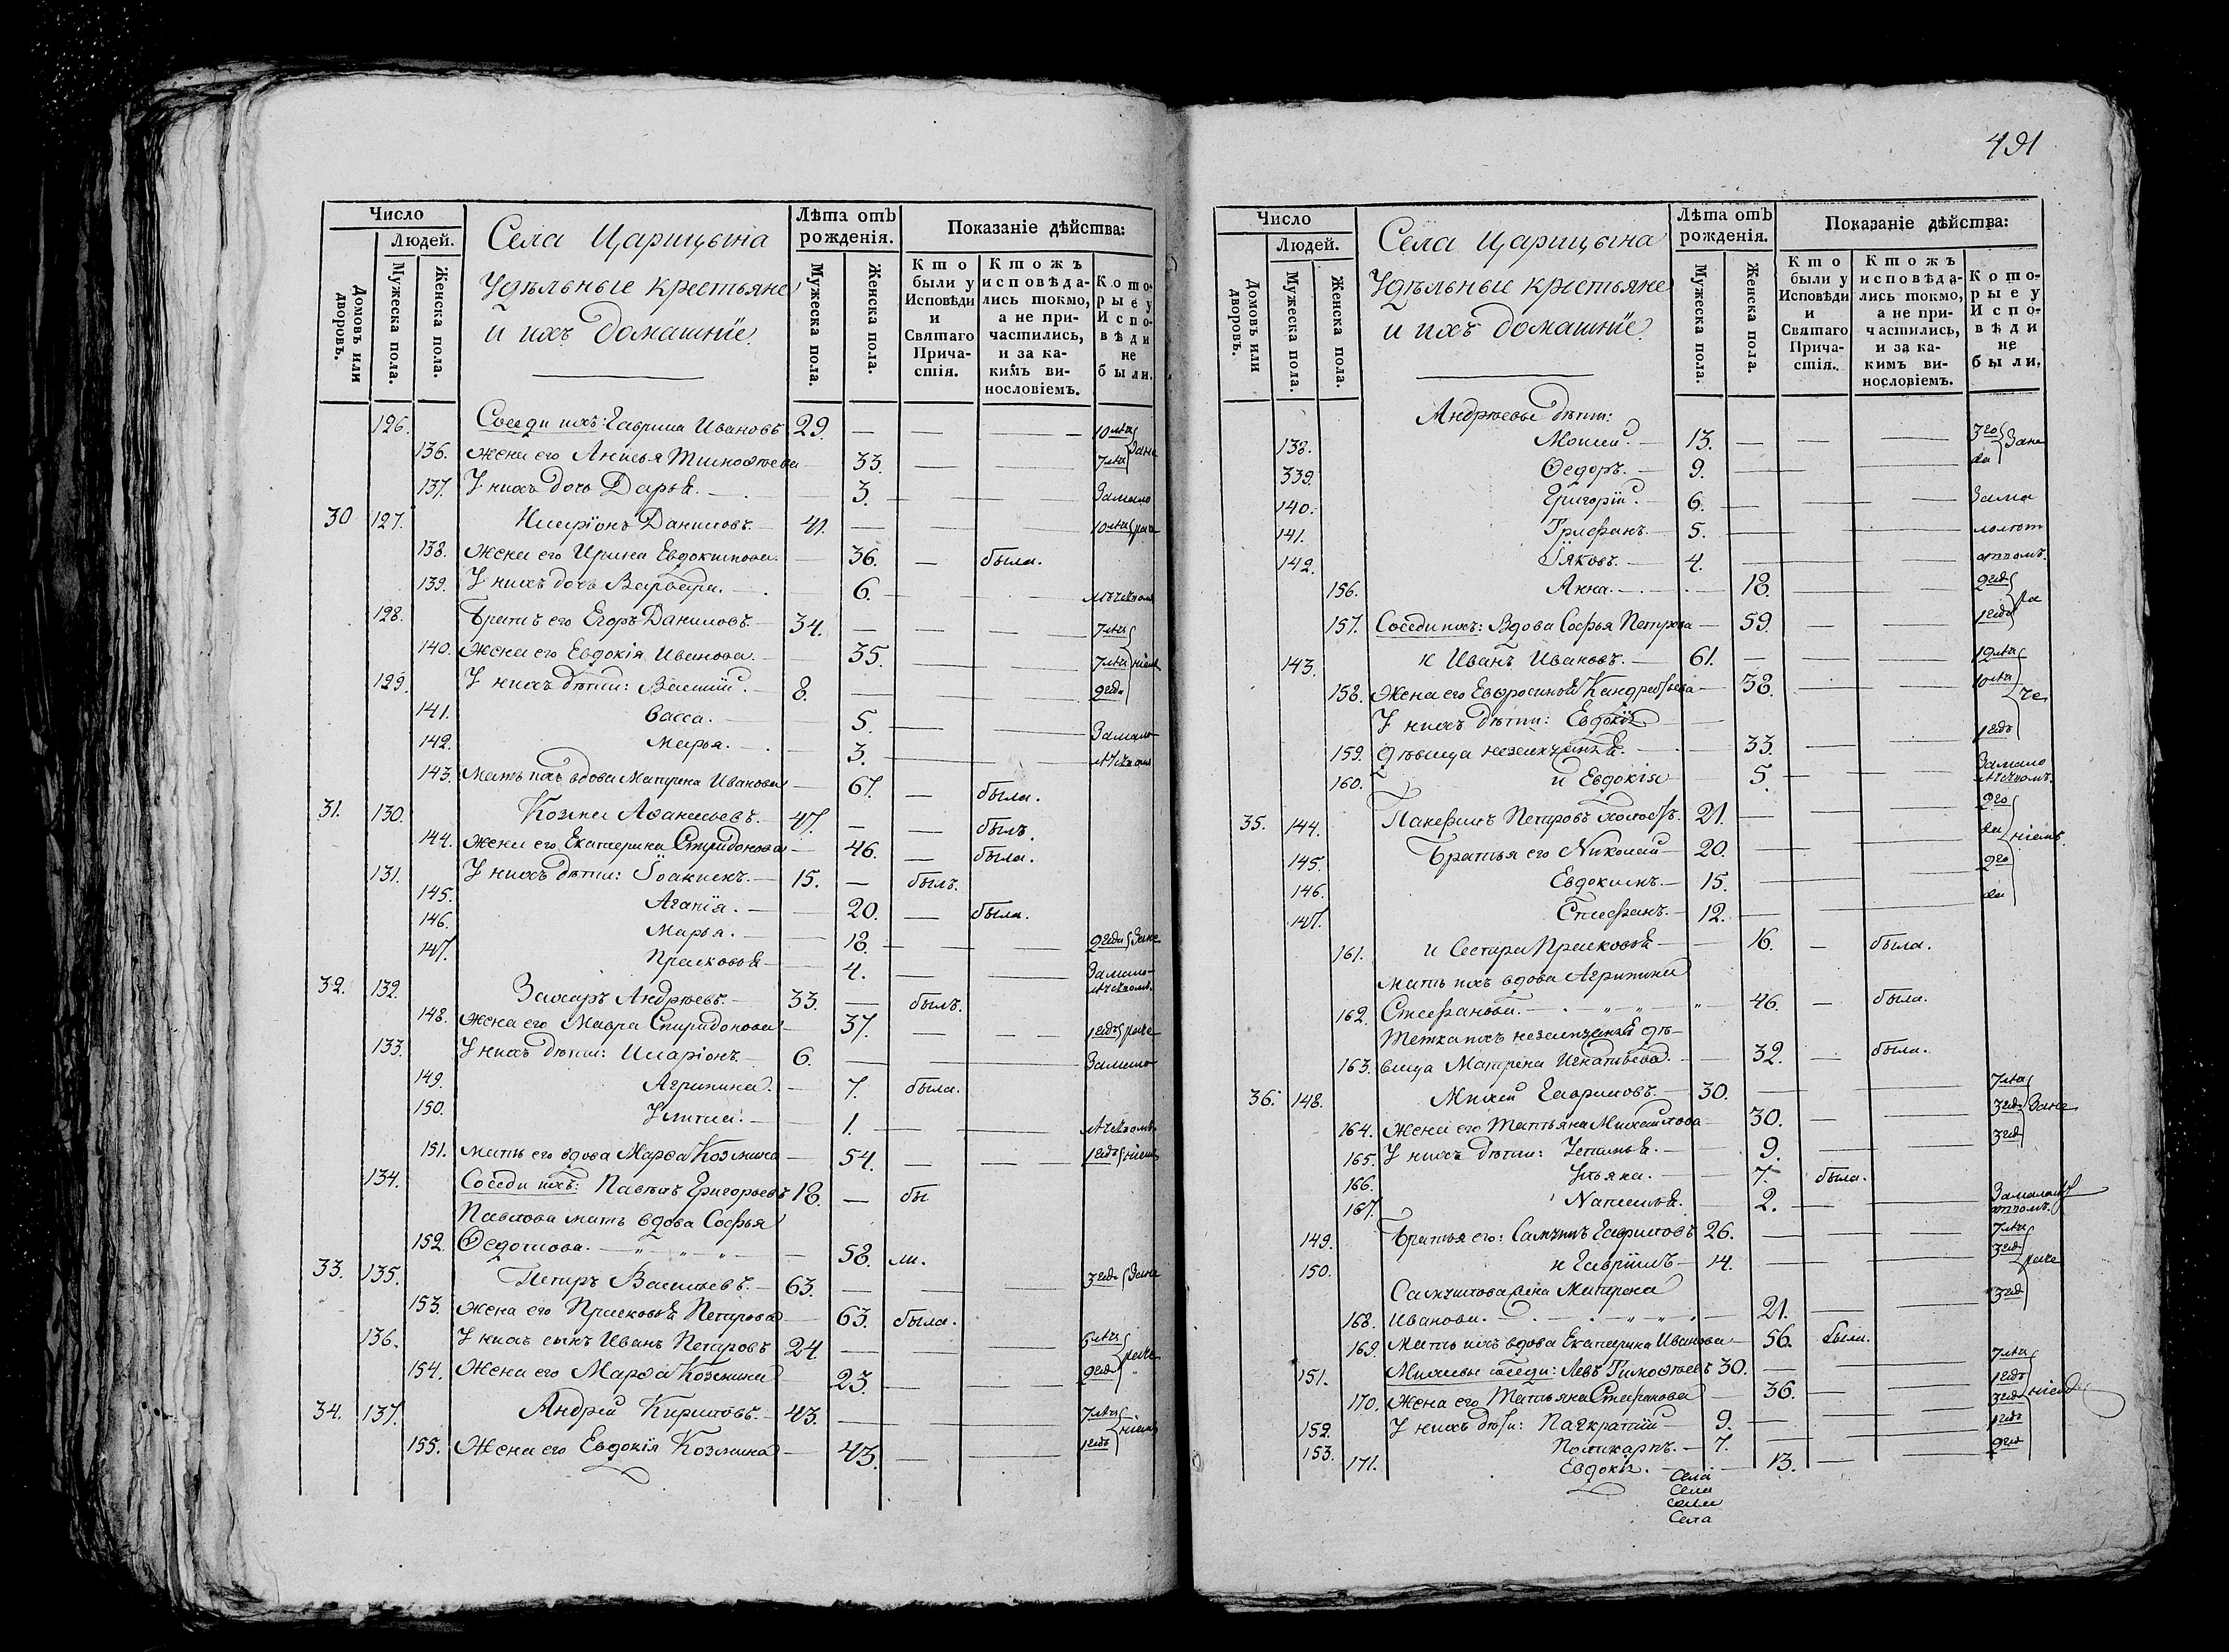 Число
Людей.
Домовъ или дворовъ.
Мужеска пола.
Женска пола.
Села Царицына
Удѣльные крестьяне
и ихъ домашніе.
Лѣта отъ рожденія.
Мужеска пола.
Женска пола.
Показаніе дѣйства:
Кто были у Исповѣди и Святаго Причастія.
Ктожъ исповѣдались токмо, а не причастились, и за какимъ винословіемъ.
Которые у Исповѣди не были.
126. Соседи ихъ: Гаврила Ивановъ 29. — — — 10 лѣтъ
136. жена его Анисья Тимоѳѣева — 33. — — 7 лѣтъ Зане
137. У нихъ дочь Дарья. — 3. — — Замало
30 127. Иларіонъ Даниловъ. — 41. — — 10 лѣтъ раче
138. жена его Ирина Евдокимова. — 36. — была.
139. У нихъ дочь Варвара. — 6. — — лѣтствомъ
128. Братъ его Егоръ Даниловъ. — 34. — — 7 лѣтъ
140. жена его Евдокія Иванова. — 35. — — 7 лѣтъ ніемъ
129. У нихъ дѣти: Василій. — 8. — — 2 года
141. Васса. — 5. — — Замало
142. Марья. — 3. — — лѣтствомъ
143. мать ихъ вдова Матрена Иванова — 67. — была.
31. 130. Козма Аѳанасьевъ. — 47. — — былъ.
144. жена его Екатерина Спиридонова — 46. — была.
131. У нихъ дѣти: Іоакимъ. — 15. — былъ.
145. Агапія. — 20. — была.
146. Марья. — 18. — — 2 года Зане
147. Прасковья — 4. — — Замало-лѣтствомъ.
32. 132. Захаръ Андрѣевъ. — 33. — былъ.
148. жена его Мавра Спиридонова — 37. — — 1 годъ раче
133. У нихъ дѣти: Иларіонъ — 6. — — Замало
149. Агрипина. — 7. была.
150. Улита. — 1. — — лѣтствомъ
151. мать его вдова Марѳа Козмина — 54. — — 1 годъ ніемъ
134. Соседи ихъ: Павелъ Григорьевъ 18. — бы
Павлова мать вдова Софья
152. Ѳедотова. — „ — „ — „ — 58. ли.
33. 135. Петръ Васильевъ. — 63. — — 3 года Зане
153. жена его Прасковья Петрова — 63. была.
136. У нихъ сынъ Иванъ Петровъ 24. — — 6 лѣтъ
154. Жена его Марѳа Козмина — 23. — — 2 года раче
34. 137. Андрей Кириловъ. — 43. — — 7 лѣтъ
155. Жена его Евдокія Козмина — 43. — — 1 годъ ніемъ
491
Число
Людей.
Домовъ или дворовъ.
Мужеска пола.
Женска пола.
Села Царицына
Удѣльные крестьяне
и ихъ домашніе.
Лѣта отъ рожденія.
Мужеска пола.
Женска пола.
Показаніе дѣйства:
Кто были у Исповѣди и Святаго Причастія.
Ктожъ исповѣдались токмо, а не причастились, и за какимъ винословіемъ.
Которые у Исповѣди не были.
Андрѣевы дѣти:
138. Моисей. — 13. — — 3 го
339. Ѳедоръ. — 9. — — да Зане
140. Григорій. — 6. — Зама
141. Трифанъ. — 5. — —
142. Іяковъ. — 4. — —
156. Анна. — 18. — — 2 года
157. Соседи ихъ: Вдова Софья Петрова — 59. — — 1 годъ ра
143. и Иванъ Ивановъ. — 61. — — 12 лѣтъ
158. Жена его Евфросинья Кандратьева — 38. — — 10 лѣтъ че
У нихъ дѣти: Евдокія
159. дѣвица незаконная. — 33. — — 1 годъ
160. и Евдокія 5. — — Замало лѣтствомъ.
35. 144. Панфилъ Петровъ холостъ. 21. — — 2 го
145. Братья его Николай — 20. — — да ніемъ
146. Евдокимъ. — 15. — — 2 го
147. Стефанъ. — 12. — — да
161. и Сестра Прасковья — 16. — была.
мать ихъ вдова Агрипина
162. Стефанова. — „ — „ — „ — 46. — была.
Тетка ихъ дѣ-
163. вица Матрена Игнатьева. — 32. — была.
36. 148. Михей Гавриловъ. — 30. — — 7 лѣтъ
164. Жена его Татьяна Михайлова — 30. — — 3 года Зане
165. У нихъ дѣти: Устинья. — 9. — 3 года
166. Ульяна. — 7. была.
167. Наталья. — 2. — —
149. Братья его: Самуилъ Гавриловъ 26. — — 7 лѣтъ
150. и Гавріилъ — 14. — — 3 года раче
Самуилова жена Матрена
168. Иванова. — „ — „ — „ — 21. — — 3 года
169. Мать ихъ вдова Екатерина Иванова — 56. была.
151. Михеевы соседи: Левъ Тимоѳѣевъ 30. — — 7 лѣтъ
170. Жена его Татьяна Стефанова — 36. — — 1 годъ
152. У нихъ дѣти: Панкратій — 9. — — 3 года ніемъ
153. Поликарпъ. — 7. — — 1 годъ
171. Евдокія. — 13. — — 2 года
Села
Села
Села
Села